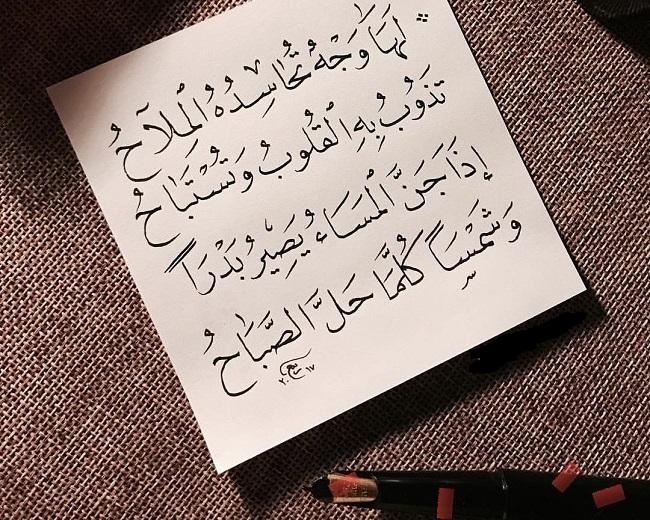 لَهَا وَجْهٌ تُحَاسِدُهُ الْمِلَاحُ
تَذُوبُ بِهِ الْقُلُوبُ وَتُسْتَبَاحُ
إِذَا جَنَّ الْمَسَاءُ يَصِيرُ بَدْرَاً
وَشَمْسَاً كُلَّمَا حَلَّ الصَّبَاحُ
٢٠١٧